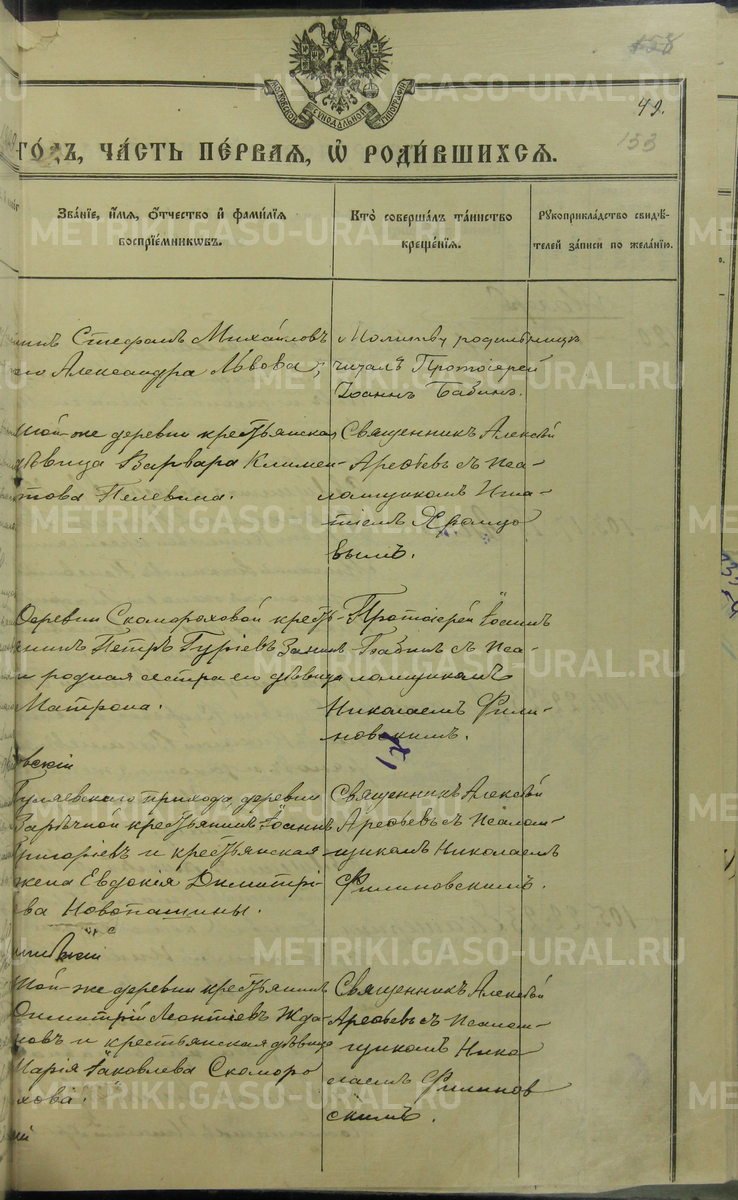 158
49.
133
МОСКОВСКОЙ СѴНОДАЛЬНОЙ ТИПОГРАФІИ
ГО́ДЪ, ЧА́СТЬ ПЕ́РВАЯ, Ѡ҆ РОДИ́ВШИХСЯ.
Зва́нїе, и҆́мя, ѻ҆́тчество и҆ фами́лїя
воспрїе́мникѡвъ.
Кто̀ соверша́лъ та́инство
креще́нїя.
Рꙋкоприкла́дство свидѣ́-
телей за́писи по жела́нїю.
Стефанъ Михайловъ
Александра Львова;
Молитву родильницѣ
читалъ Протоіерей
Іоаннъ Бабинъ.
той-же деревни крестьянская
дѣвица Варвара Климен-
това Пелевина.
Священникъ Алексѣй
Арефьевъ съ Пса-
ломщикомъ Игна-
тіемъ Хромцо
вымъ.
Деревни Скомороховой кресть-
янинъ Петръ Гуріевъ
и родная сестра его дѣвица
Матрона.
Протоіерей Іоаннъ
Бабинъ съ Пса-
ломщикомъ
Николаемъ Фили-
новскимъ.
вскій
Гуляевскаго прихода деревни
Зарѣчной крестьянинъ Іоаннъ
Григоріевъ и крестьянская
жена Евдокія Димитрі-
ева Новопашины.
Священникъ Алексѣй
Арефьевъ съ Псалом-
щикомъ Николаемъ
Филиновскимъ.
той-же деревни крестьянинъ
Димитрій Леонтіевъ Жда-
новъ и крестьянская дѣвица
Марія Іаковлева Скоморо
хова.
Священникъ Алексѣй
Арефьевъ съ Псалом-
щикомъ Нико
лаемъ Филинов
скимъ.
METRIKI.GASO-URAL.RU